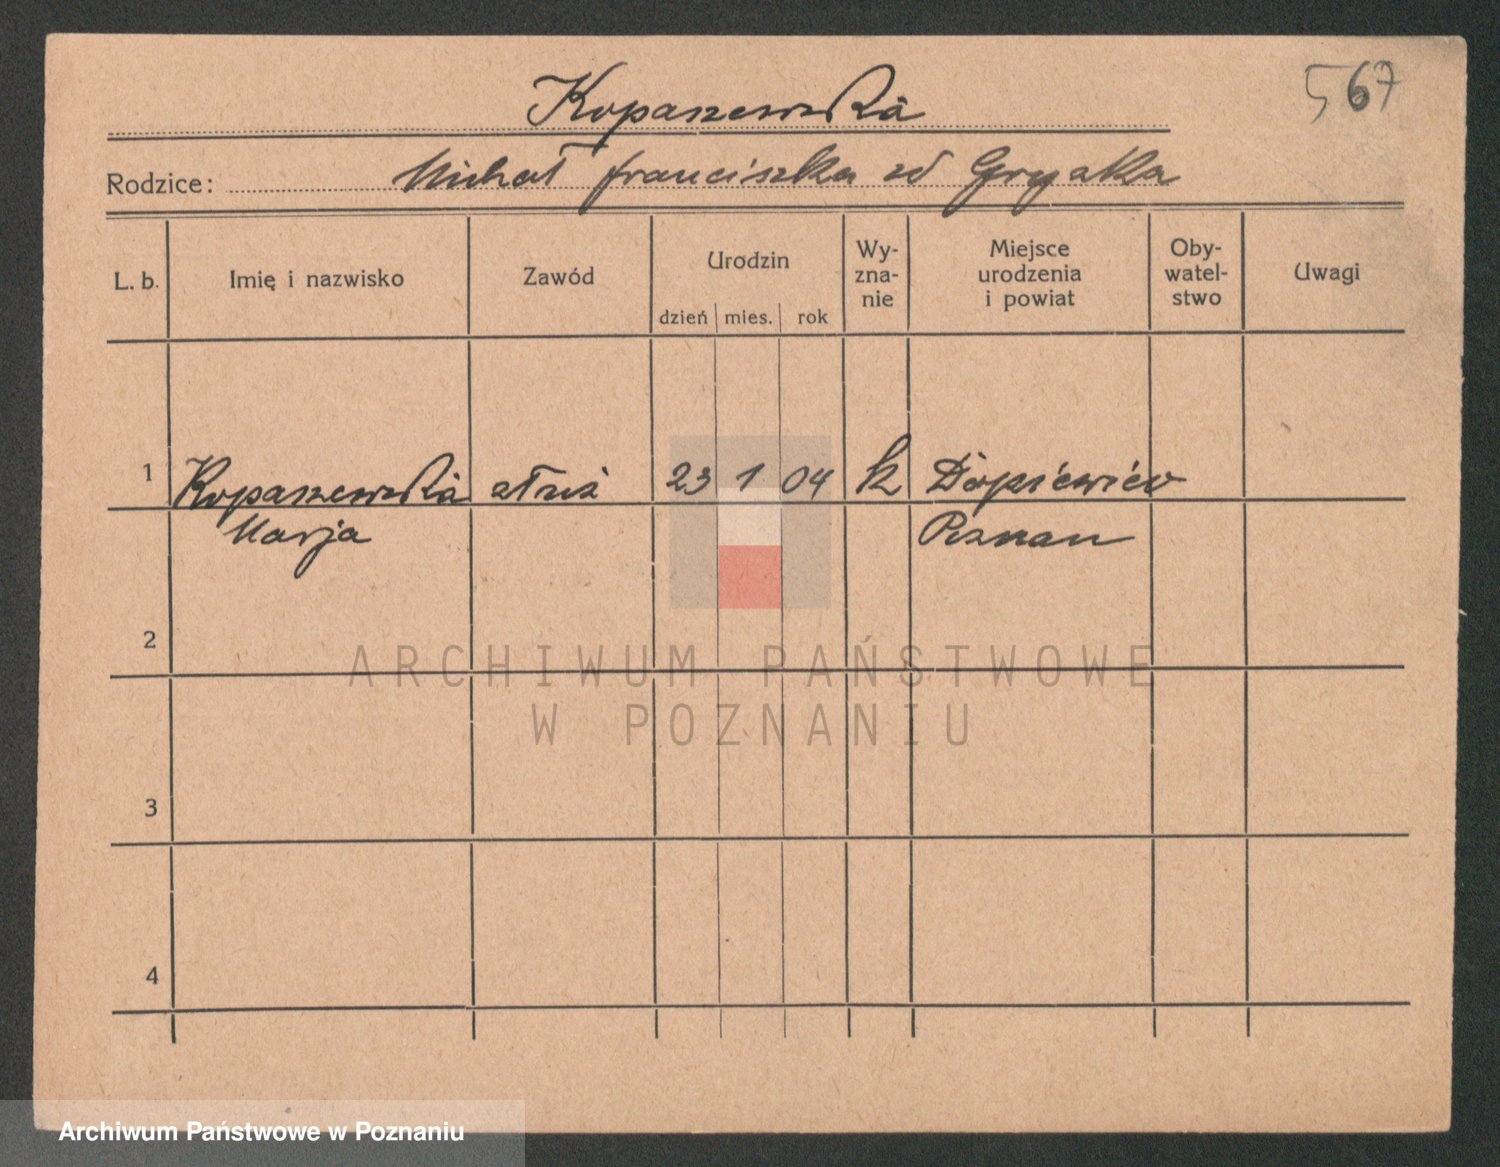 567
Kopaszewska
Rodzice: Michał Franciszka zd
L. b. Imię i nazwisko Zawód Urodzin dzień mies. rok Wy-zna-nie Miejsce urodzenia i powiat Oby-watel-stwo Uwagi
1 Kopaszewska 23 1 04 k Dopiewiec
Marja Poznan
2
3
4
ARCHIWUM PAŃSTWOWE
W POZNANIU
Archiwum Państwowe w Poznaniu